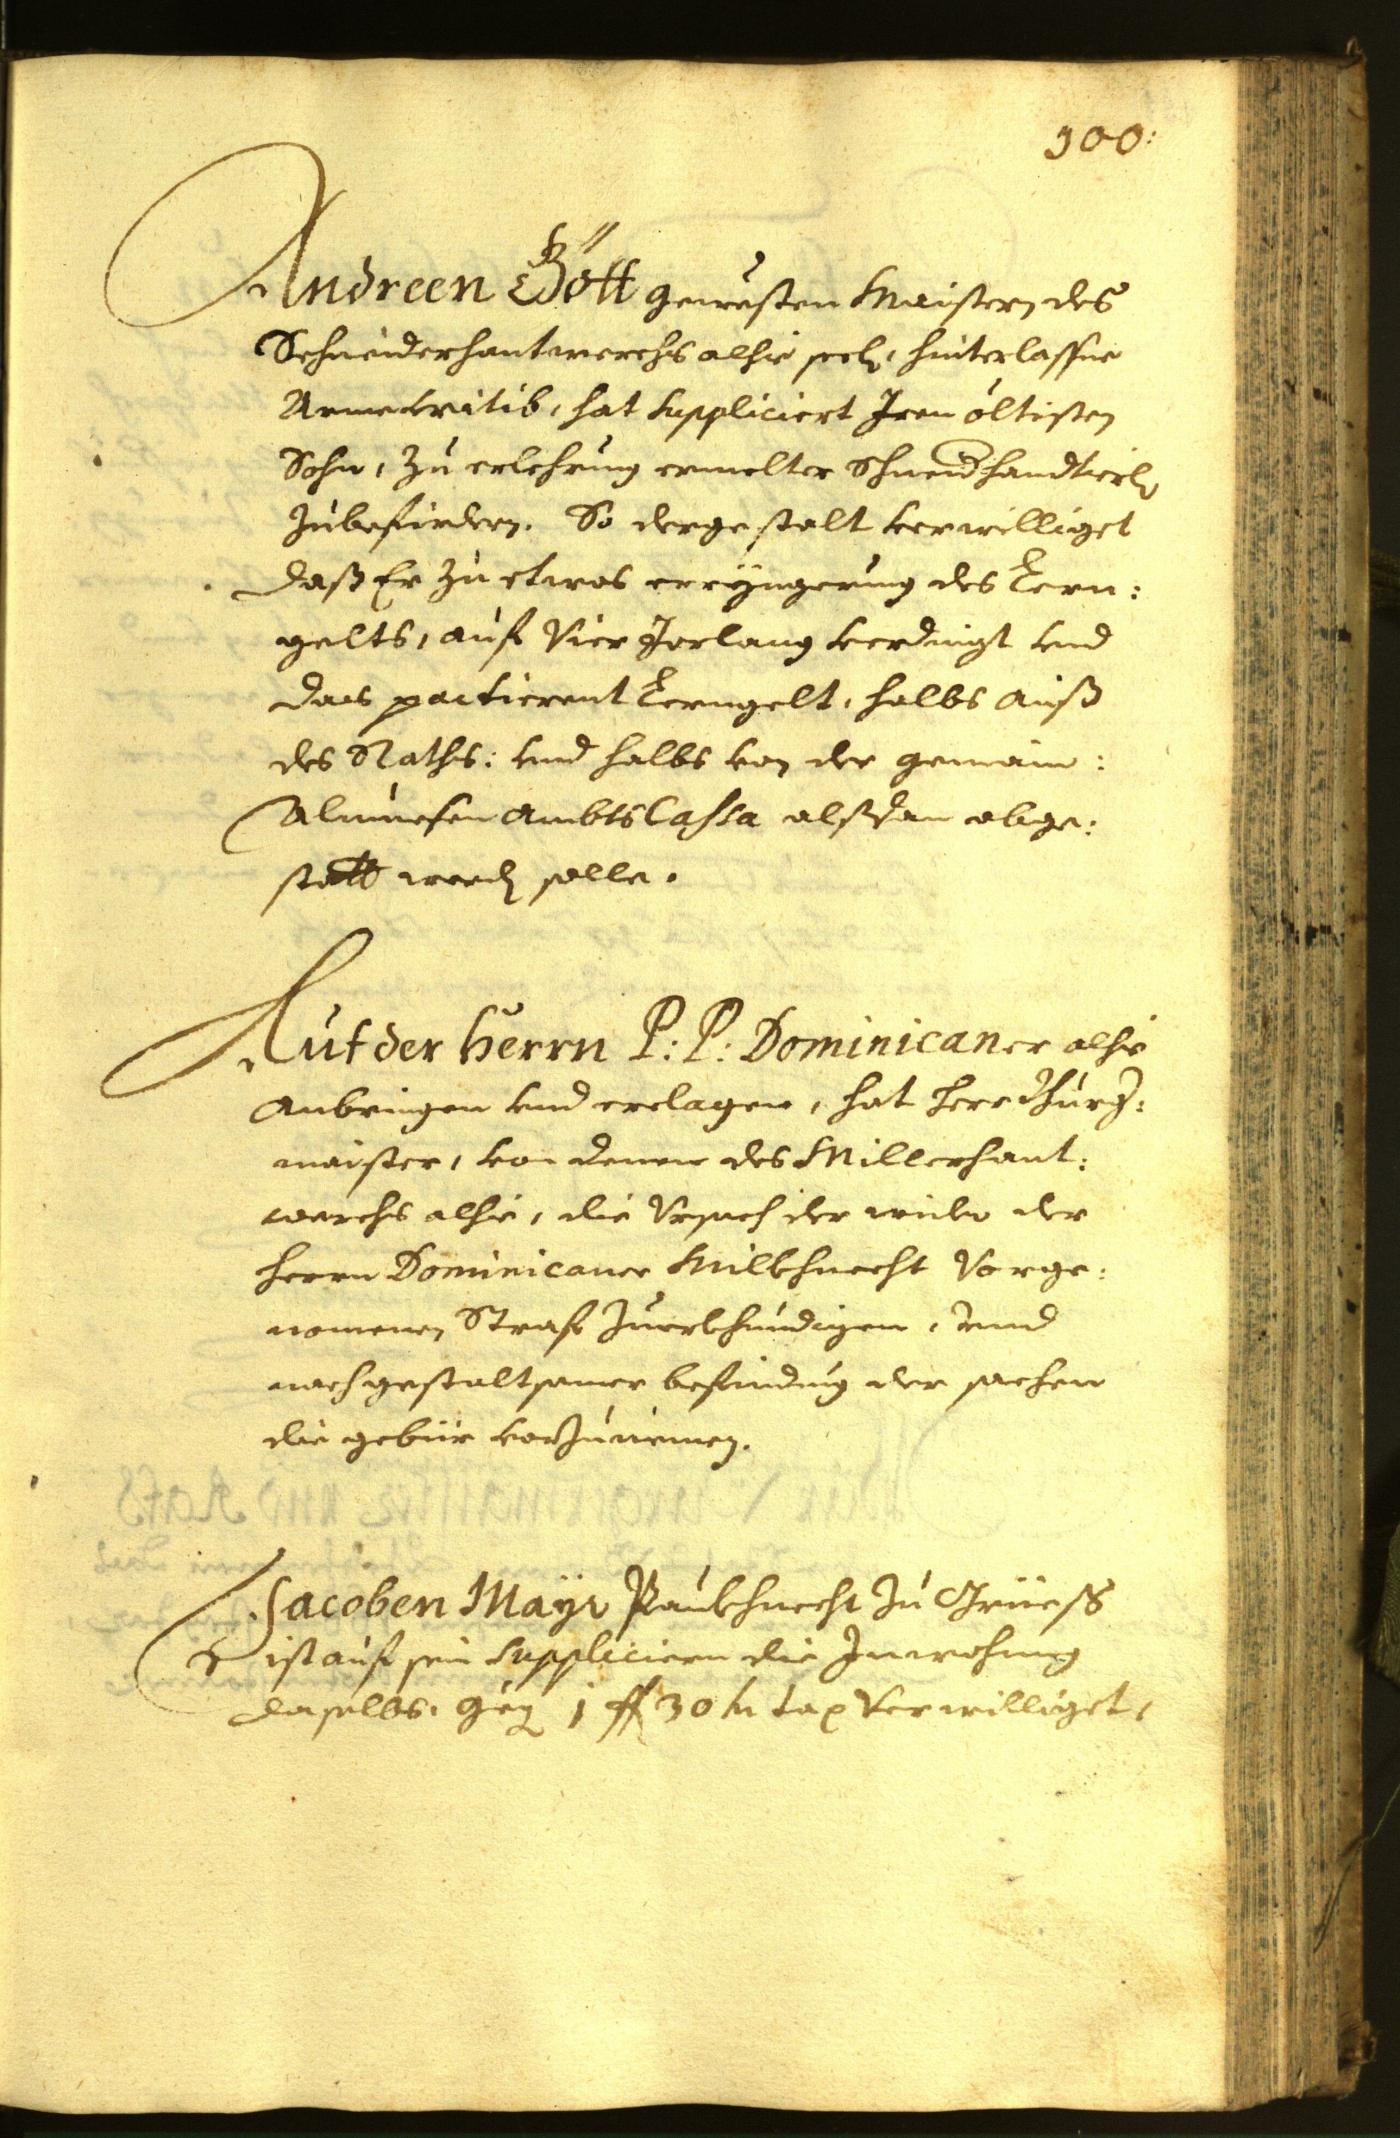 300:
Andreen Gött gewesten Maistern des
Schneiderhantwerchs alhie seel, hinterlassne
Arme witib, hat Suppliciert Iren öltisten
Sohn, zu erlehrung ermelter Schneid handtierl
zubefirdern. So dergestalt verwilliget
daß Er zu etwas erryngerung des Lern:
gelts, auf Vier Jorlang verdingt und
das pactierent Lerngelt, halbs auß
des Raths: und halbs von der gemain:
Almuesen Ambts Cassa alßdan abge:
statt werd solle.
Auf der Herrn P: P: Dominicaner alhie
Anbringen und erclagen, hat Herr
maister, von denen des Millerhant:
werchs alhie, die Vrsach der wider der
Herrn Dominicaner Millkhnecht Vorge:
nomenen Straf zuerkhundigen, vnnd
nach gestaltsamer befindung der sachen
die gebür vorzunemen.
Jacoben Mayr Paukhnecht zu Grüeß
ist auf sein Supplicieren die Inwohnung
daselbs. Geg 1 f 30 kr tax Verwilliget,